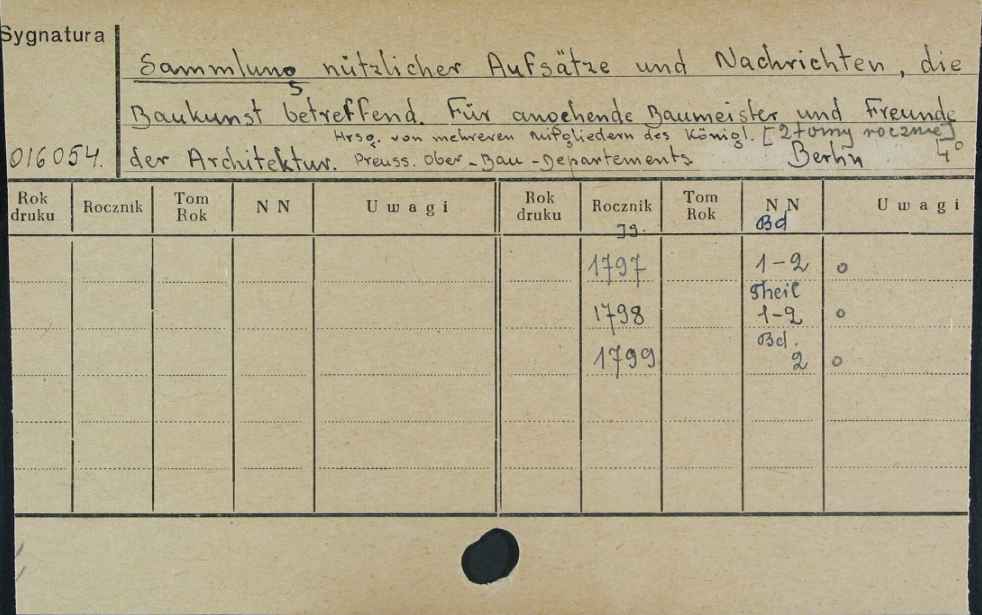 Sygnatura
Sammlung nützlicher Aufsätze und Nachrichten, die
Baukunst betreffend. Für angehende Baumeister und Freunde
Hrsg. von mehreren Mitgliedern des Königl. [2 tomy rocznie]
016054. der Architektur. Preuss. Ober-Bau-Departements Berlin 4°
Rok druku Rocznik Tom Rok NN Uwagi Rok druku Rocznik Tom Rok NN Uwagi
Jg. Bd
1797 1-2 o
Theil
1798 1-2 o
Bd.
1799 2 o